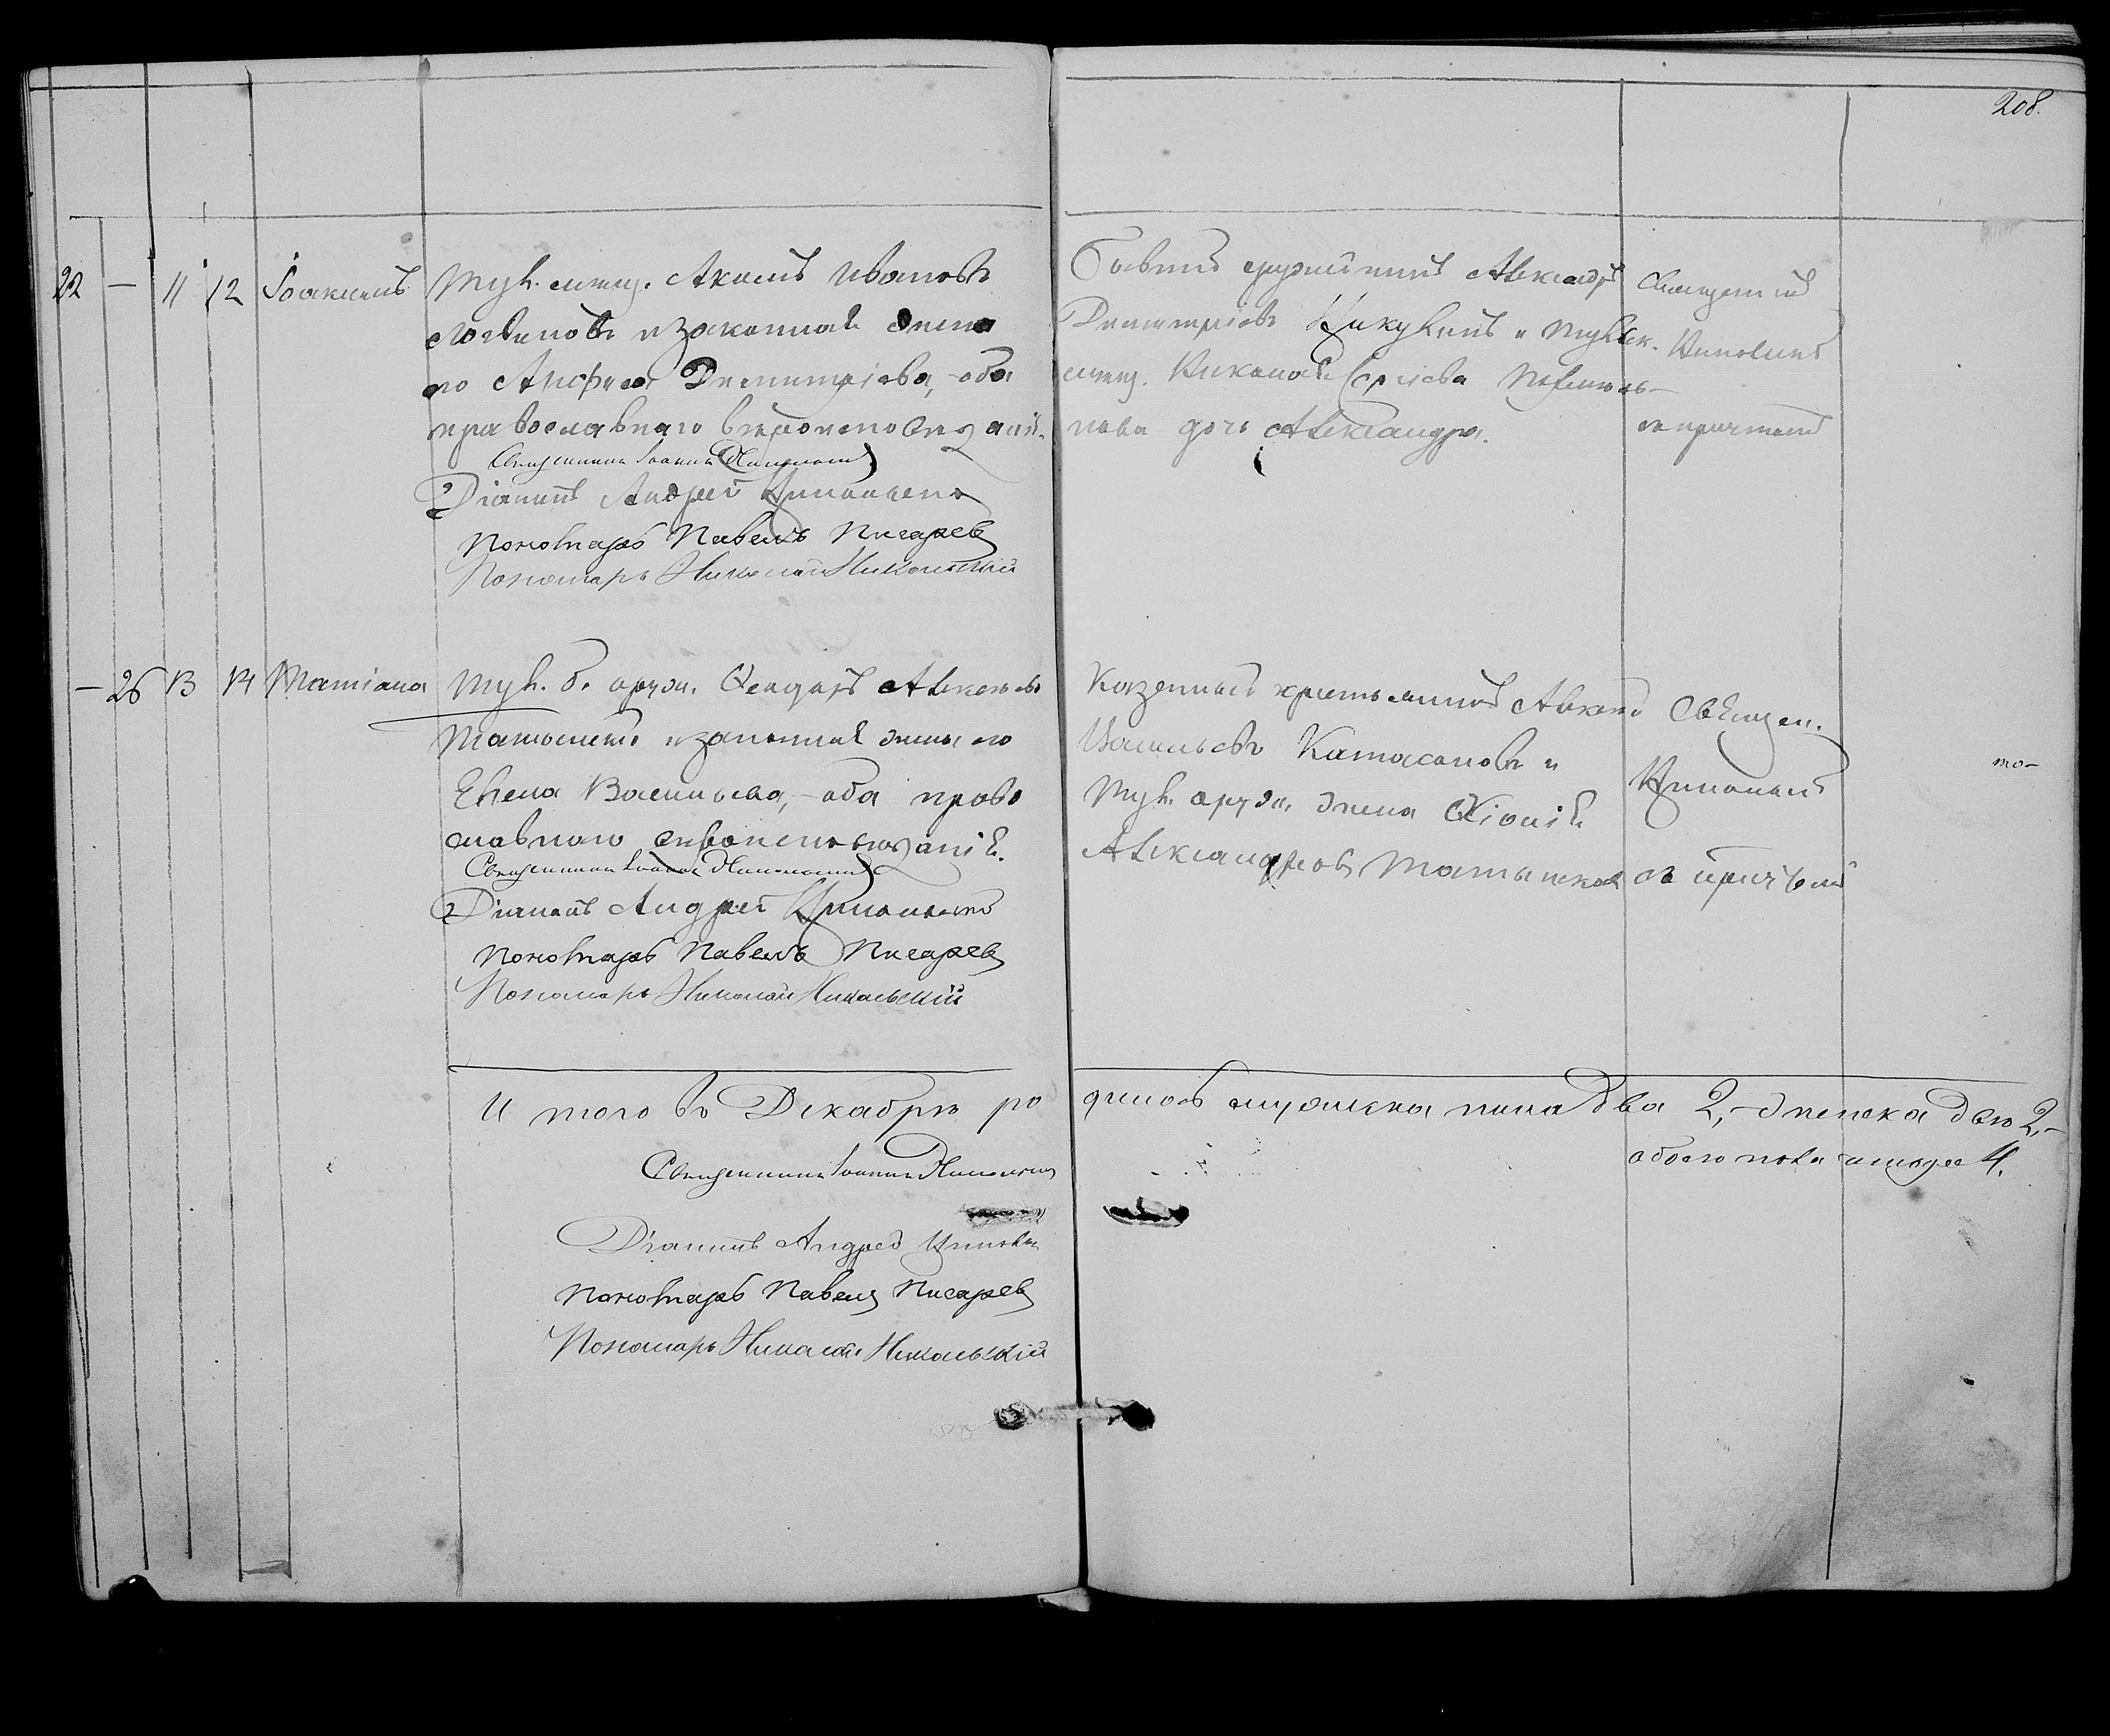 208.
22 — 11 12 Іоакимъ
Тул. мещ. Акимъ Ивановъ
Логвиновъ и законная жена
его Анфиса Димитріева, оба
православнаго вѣроисповѣданія.
Священникъ Іоаннъ Никольскій
Діаконъ Андрей
Пономарь Павелъ Писаревъ
Пономарь Николай Никольскій
Бывшій оружейникъ Александръ
Димитріевъ и Тульск.
мещ. Николая Сергіева
дочь Александра.
Священникъ
Никольскій
съ причтомъ
— 26 13 14 Татіана
Тул. б. оруж. Алексѣевъ
и законная жена его
Елена Васильева, оба право
славнаго вѣроисповѣданія.
Священникъ Іоаннъ Никольскій
Діаконъ Андрей
Пономарь Павелъ Писаревъ
Пономарь Николай Никольскій
Казенный крестьянинъ Алексѣй
Васильевъ Катасоновъ и
Тул. оруж. жена
Александрова
Священ.
Никольскій
съ причтомъ
И того въ Декабрѣ ро
дилось мужеска пола два 2, женска два 2,
обоего пола четыре 4.
Священникъ Іоаннъ Никольскій
Діаконъ Андрей
Пономарь Павелъ Писаревъ
Пономарь Николай Никольскій